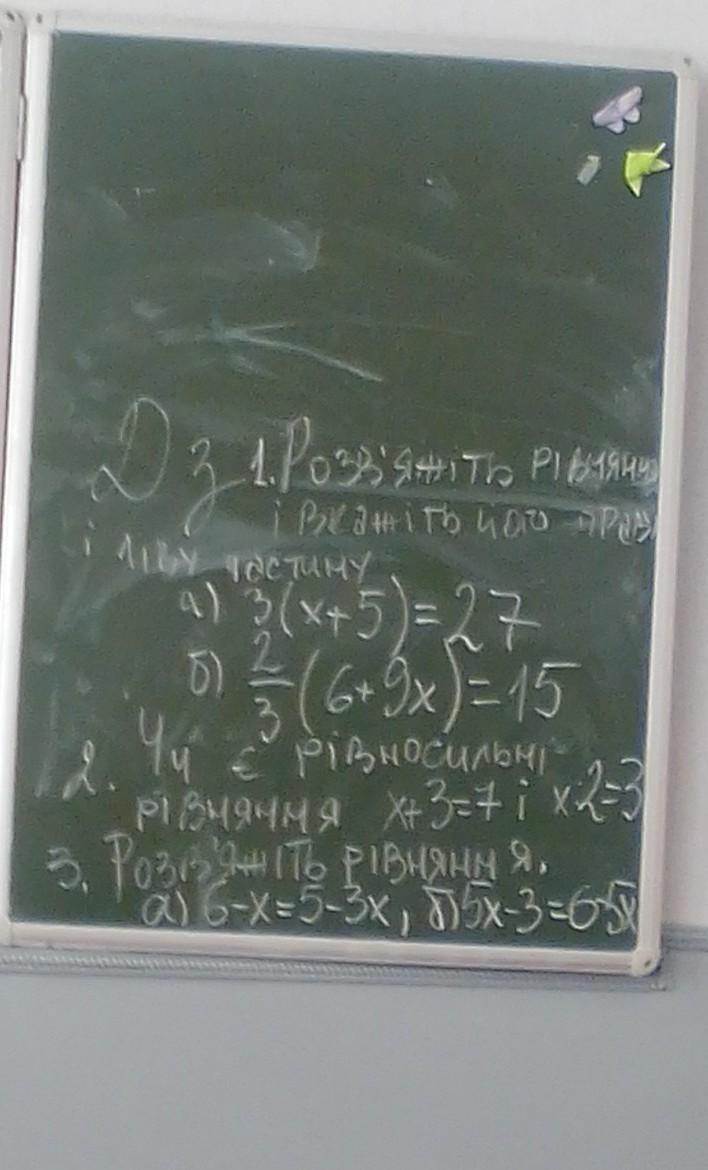 Дз 1. Розв'яжіть рівняння
і вкажіть його прав
і ліву частину
а) 3(x+5)=27
б) 2/3 (6+9x)=15
2. Чи є рівносильні
рівняння x+3=7 і x2=3
3. Розв'яжіть рівняння.
а) 6-x=5-3x, б) 5x-3=6-5x